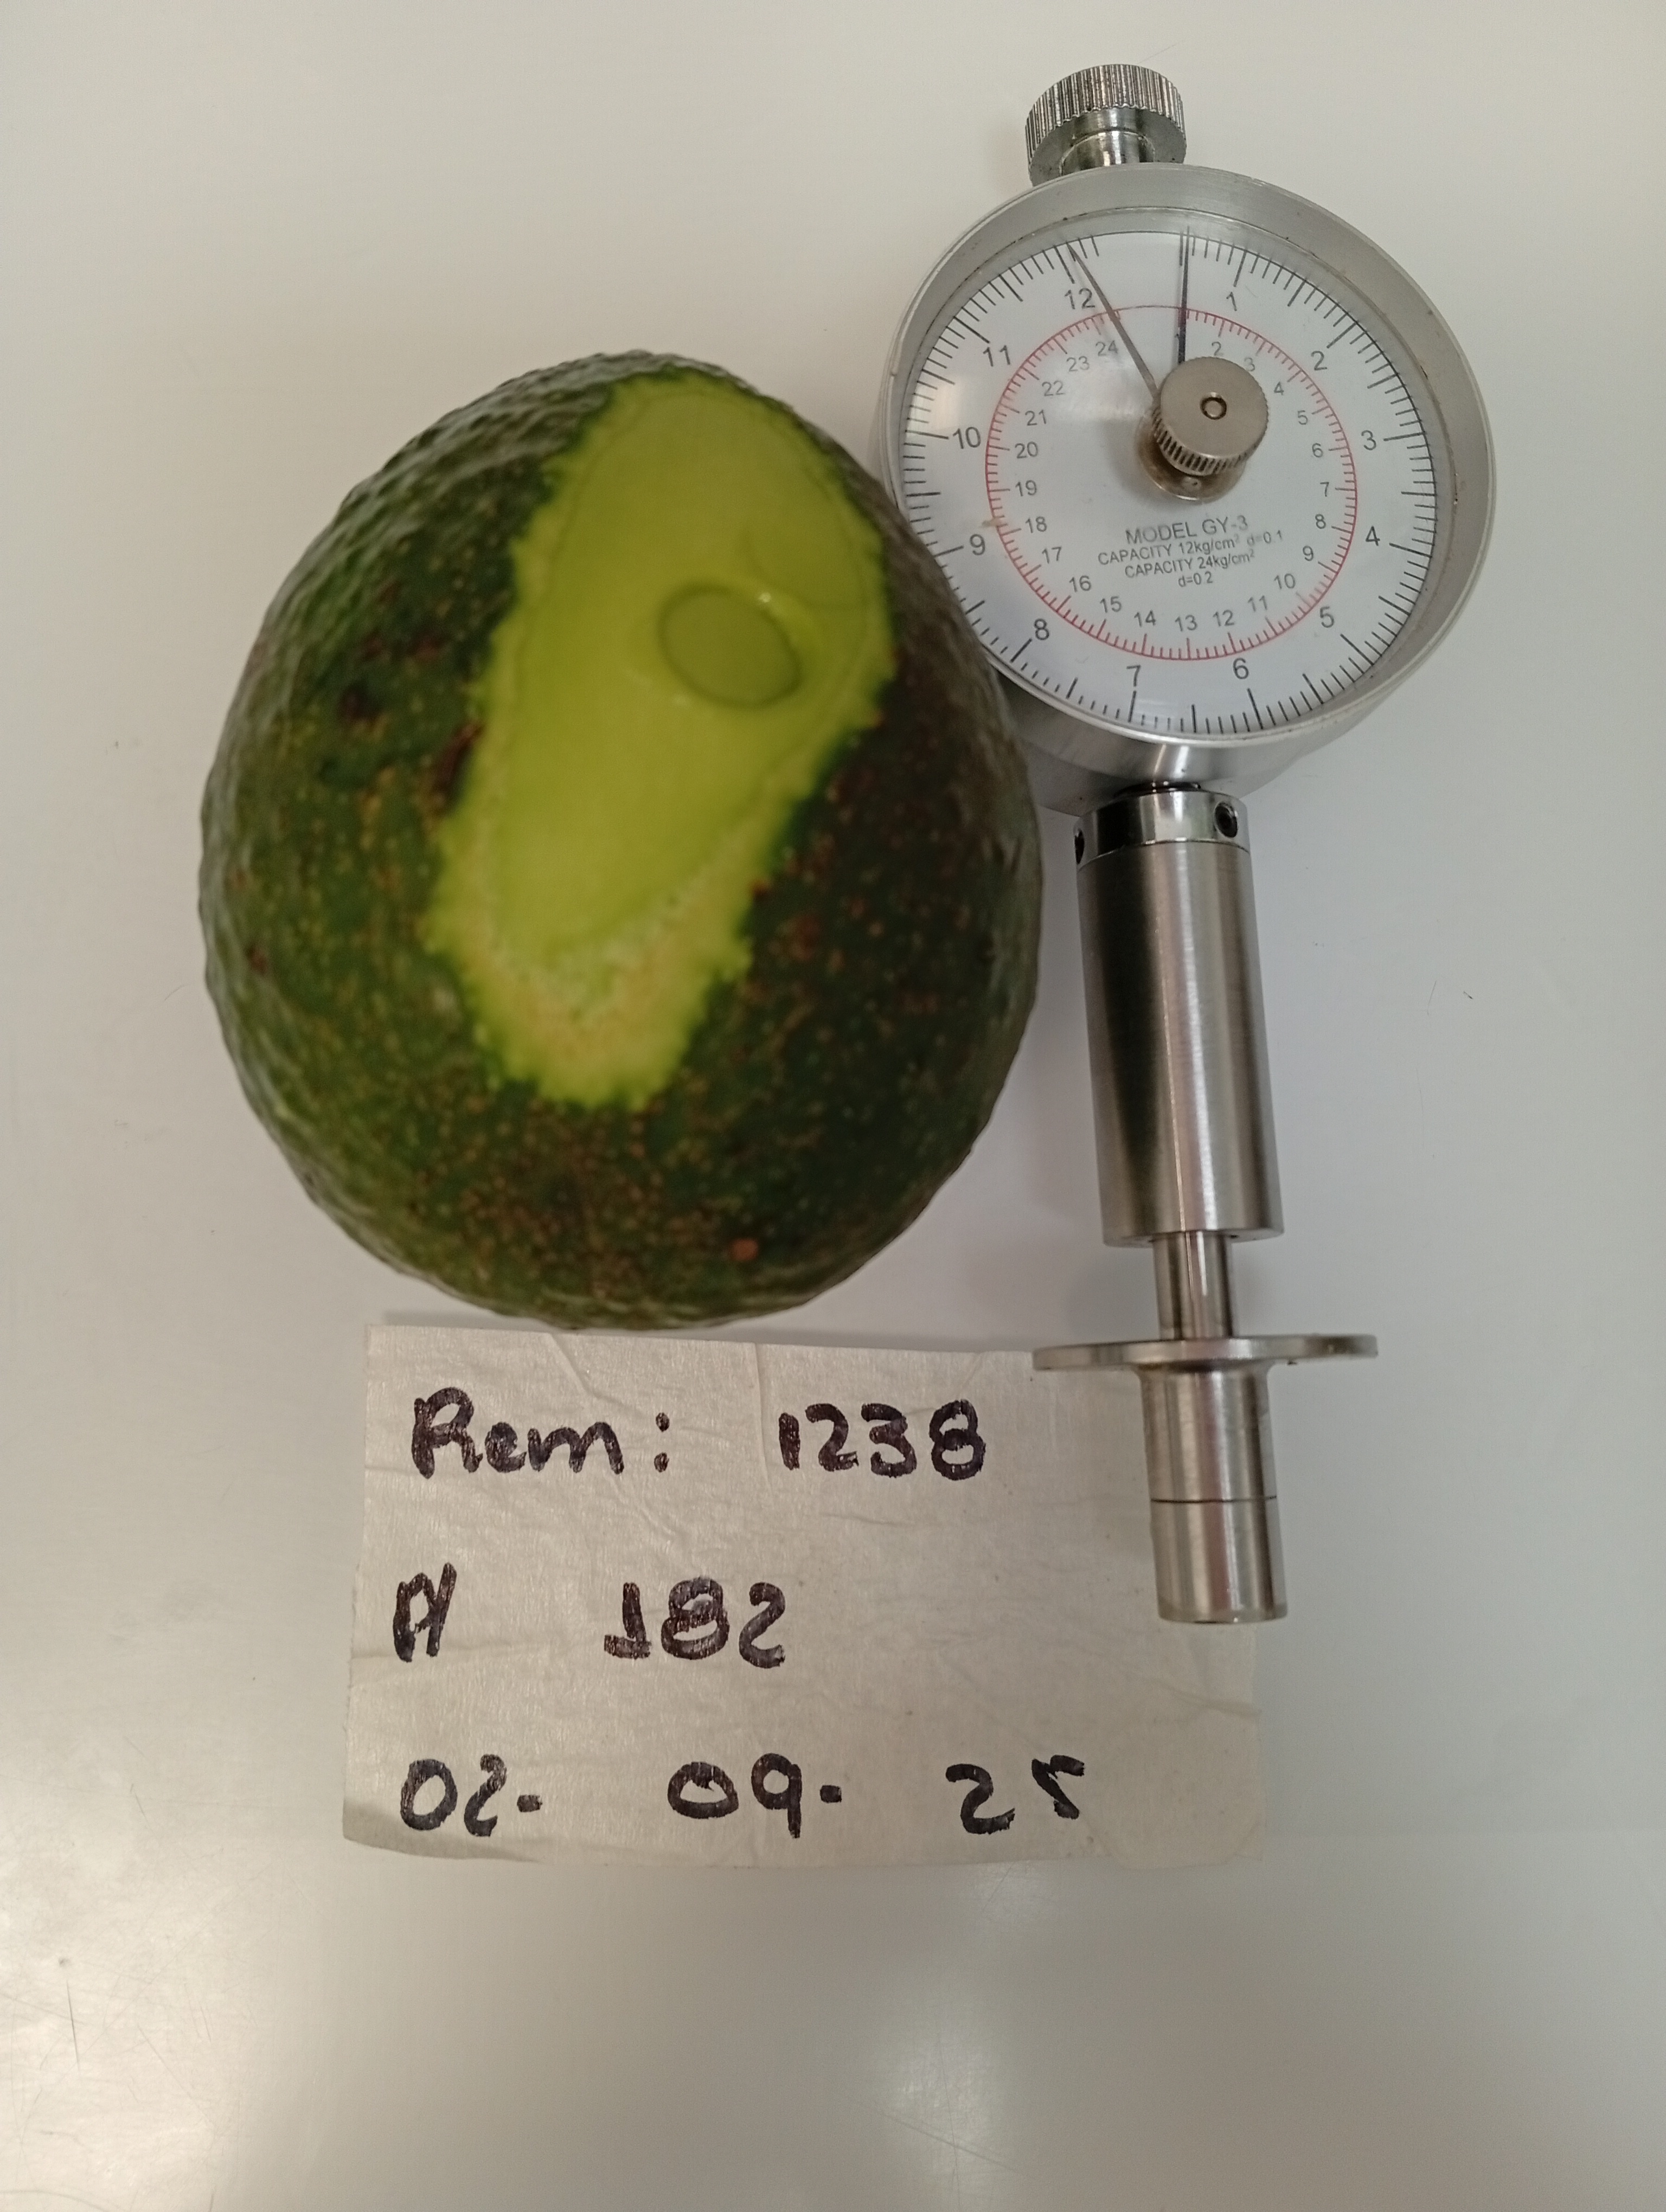 1
2
3
4
5
6
7
8
9
10
11
12
2
3
4
5
6
7
8
9
10
11
12
13
14
15
16
17
18
19
20
21
22
23
24
MODEL GY-3
CAPACITY 12kg/cm² d=0.1
CAPACITY 24kg/cm²
d=0.2
Rem: 1238
A 182
02- 09- 25